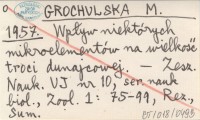 GROCHULSKA M.
1957. Wpływ niektórych
mikroelementów na wielkość
troci dunajcowej. — Zesz.
Nauk. UJ nr 10, ser. nauk
biol., Zool. 1: 75-99, Rez.,
Sum.